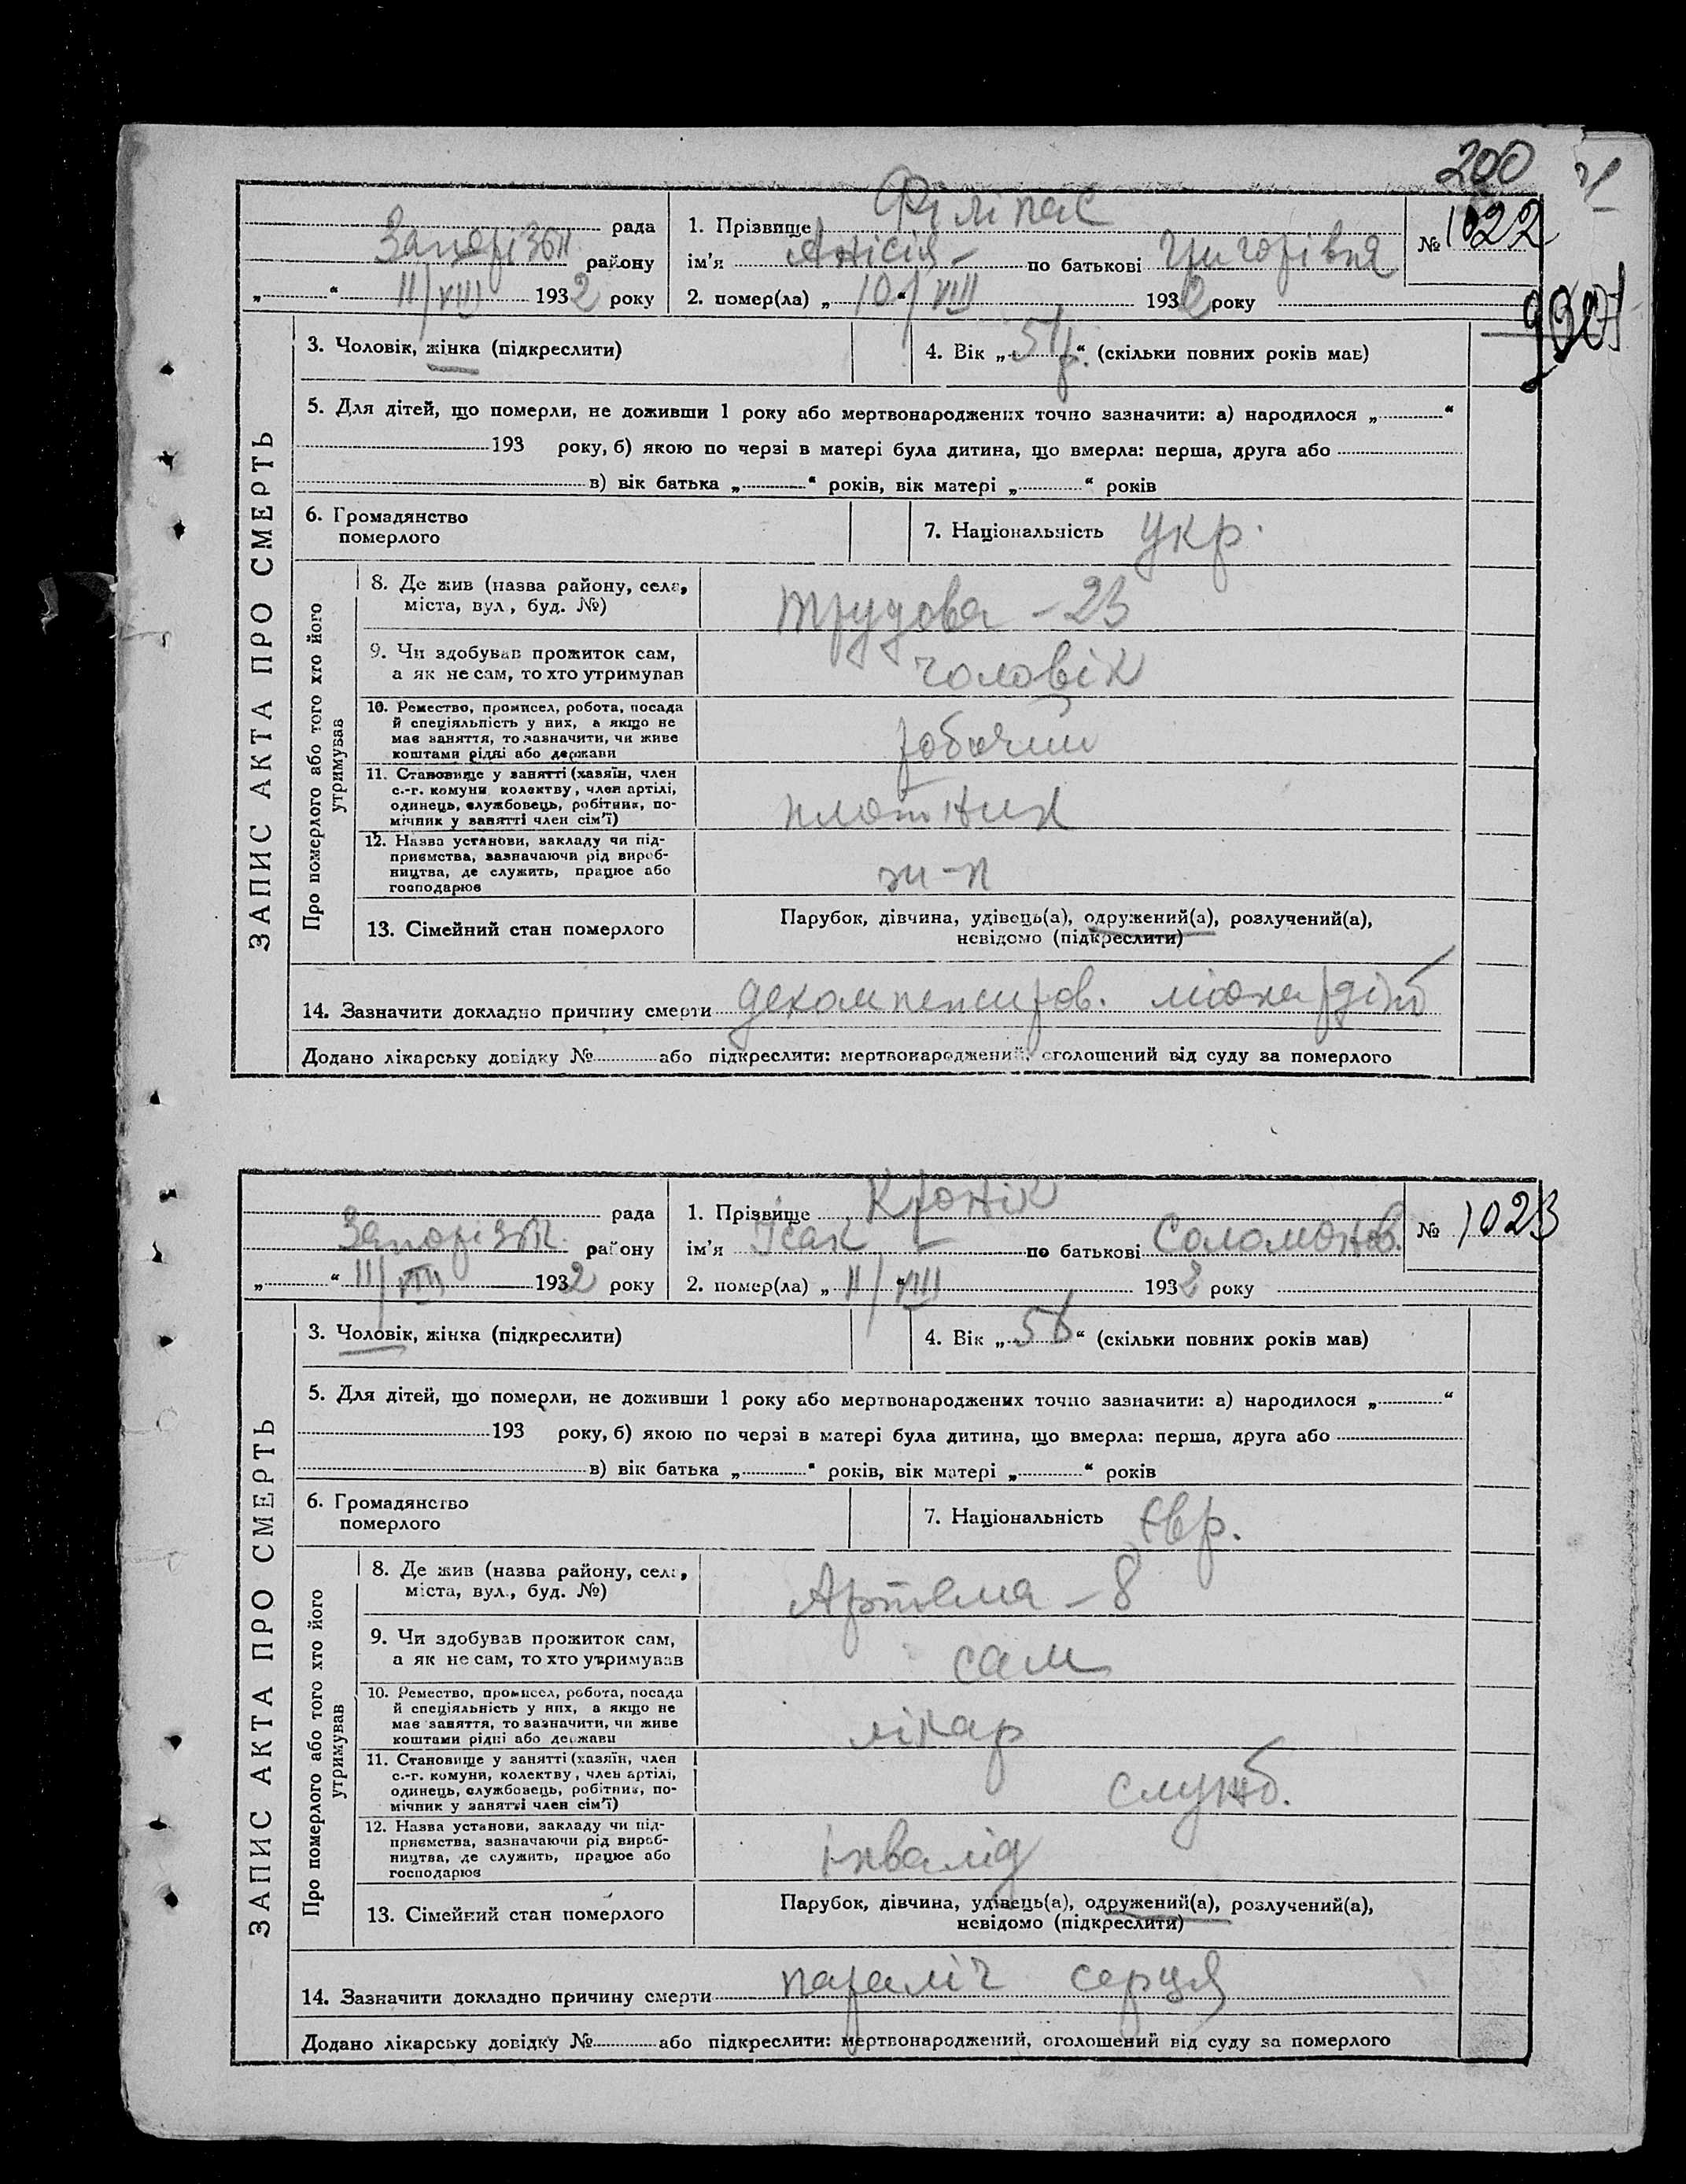 200
ЗАПИС АКТА ПРО СМЕРТЬ
Запорізьк рада
району
„ “ 11/VIII 1932 року
1. Прізвище Філіпас
ім'я Анісія по батькові Григорівна
2. помер(ла) „ 10/VIII “ 1932 року
№ 1022
3. Чоловік, жінка (підкреслити)
4. Вік „ “ (скільки повних років мав)
5. Для дітей, що померли, не доживши 1 року або мертвонароджених точно зазначити: а) народилося „ “
193 року, б) якою по черзі в матері була дитина, що вмерла: перша, друга або
в) вік батька „ “ років, вік матері „ “ років
6. Громадянство
померлого
7. Національність укр.
Про померлого або того хто його
утримував
8. Де жив (назва району, села,
міста, вул., буд. №)
трудова - 23
9. Чи здобував прожиток сам,
а як не сам, то хто утримував
чоловік
10. Ремество, промисел, робота, посада
й спеціяльність у них, а якщо не
має заняття, то зазначити, чи живе
коштами рідні або держави
робочий
11. Становище у занятті (хазяїн, член
с.-г. комуни, колектву, член артілі,
одинець, службовець, робітник, по-
мічник у занятті член сім'ї)
плотник
12. Назва установи, закладу чи під-
приємства, зазначаючи рід вироб-
ництва, де служить, працює або
господарює
13. Сімейний стан померлого
Парубок, дівчина, удівець(а), одружений(а), розлучений(а),
невідомо (підкреслити)
14. Зазначити докладно причину смерти декомпенсиров. міокардіт
Додано лікарську довідку № або підкреслити: мертвонароджений, оголошений від суду за померлого
ЗАПИС АКТА ПРО СМЕРТЬ
Запорізьк. рада
району
„ “ 11/VIII 1932 року
1. Прізвище Кронік
ім'я Ісак по батькові Соломонов.
2. помер(ла) „ 11/VIII “ 1932 року
№ 1023
3. Чоловік, жінка (підкреслити)
4. Вік „ 56 “ (скільки повних років мав)
5. Для дітей, що померли, не доживши 1 року або мертвонароджених точно зазначити: а) народилося „ “
193 року, б) якою по черзі в матері була дитина, що вмерла: перша, друга або
в) вік батька „ “ років, вік матері „ “ років
6. Громадянство
померлого
7. Національність Євр.
Про померлого або того хто його
утримував
8. Де жив (назва району, села,
міста, вул., буд. №)
Артема - 8
9. Чи здобував прожиток сам,
а як не сам, то хто утримував
сам
10. Ремество, промисел, робота, посада
й спеціяльність у них, а якщо не
має заняття, то зазначити, чи живе
коштами рідні або держави
лікар
11. Становище у занятті (хазяїн, член
с.-г. комуни, колектву, член артілі,
одинець, службовець, робітник, по-
мічник у занятті член сім'ї)
служб.
12. Назва установи, закладу чи під-
приємства, зазначаючи рід вироб-
ництва, де служить, працює або
господарює
інвалід
13. Сімейний стан померлого
Парубок, дівчина, удівець(а), одружений(а), розлучений(а),
невідомо (підкреслити)
14. Зазначити докладно причину смерти параліч серця
Додано лікарську довідку № або підкреслити: мертвонароджений, оголошений від суду за померлого